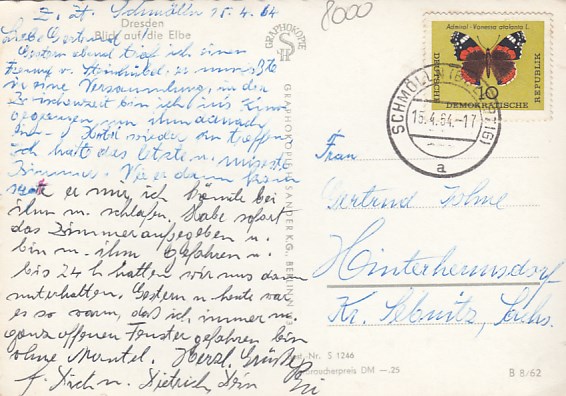 z. Zt. Schmölln 15.4.64
Dresden
Blick auf die Elbe
Liebe Gertrud
Gestern abend traf ich einen
er mußte
in eine Versammlung, in der
Zwischenzeit bin ich ins Kino
gegangen um ihn danach
im Hotel wieder zu treffen
Ich hatte das letzte u. mieseste
Zimmer. Wie er dann kam
sagte er mir, ich könnte bei
ihm m. schlafen. Habe sofort
das Zimmer aufgegeben u.
bin m. ihm gefahren u.
bis 24 h hatten wir uns dann
unterhalten. Gestern u. heute war
es so warm, daß ich immer m.
ganz offenen Fenster gefahren bin
ohne Mantel. Herzl. Grüße
f. Dich u. Dietrich, Dein
8000
GRAPHOKOPIE
GRAPHOKOPIE H. SANDER K.G., BERLIN
Admiral · Vanessa atalanta L.
10
DEUTSCHE
DEMOKRATISCHE
REPUBLIK
SCHMÖLLN (BZ LEIPZIG)
15.4.64.-17
a
Frau
Gertrud
Hinterhermsdorf
Kr. Sebnitz, Sachs.
Best. Nr. S 1246
Verbraucherpreis DM —.25
B 8/62